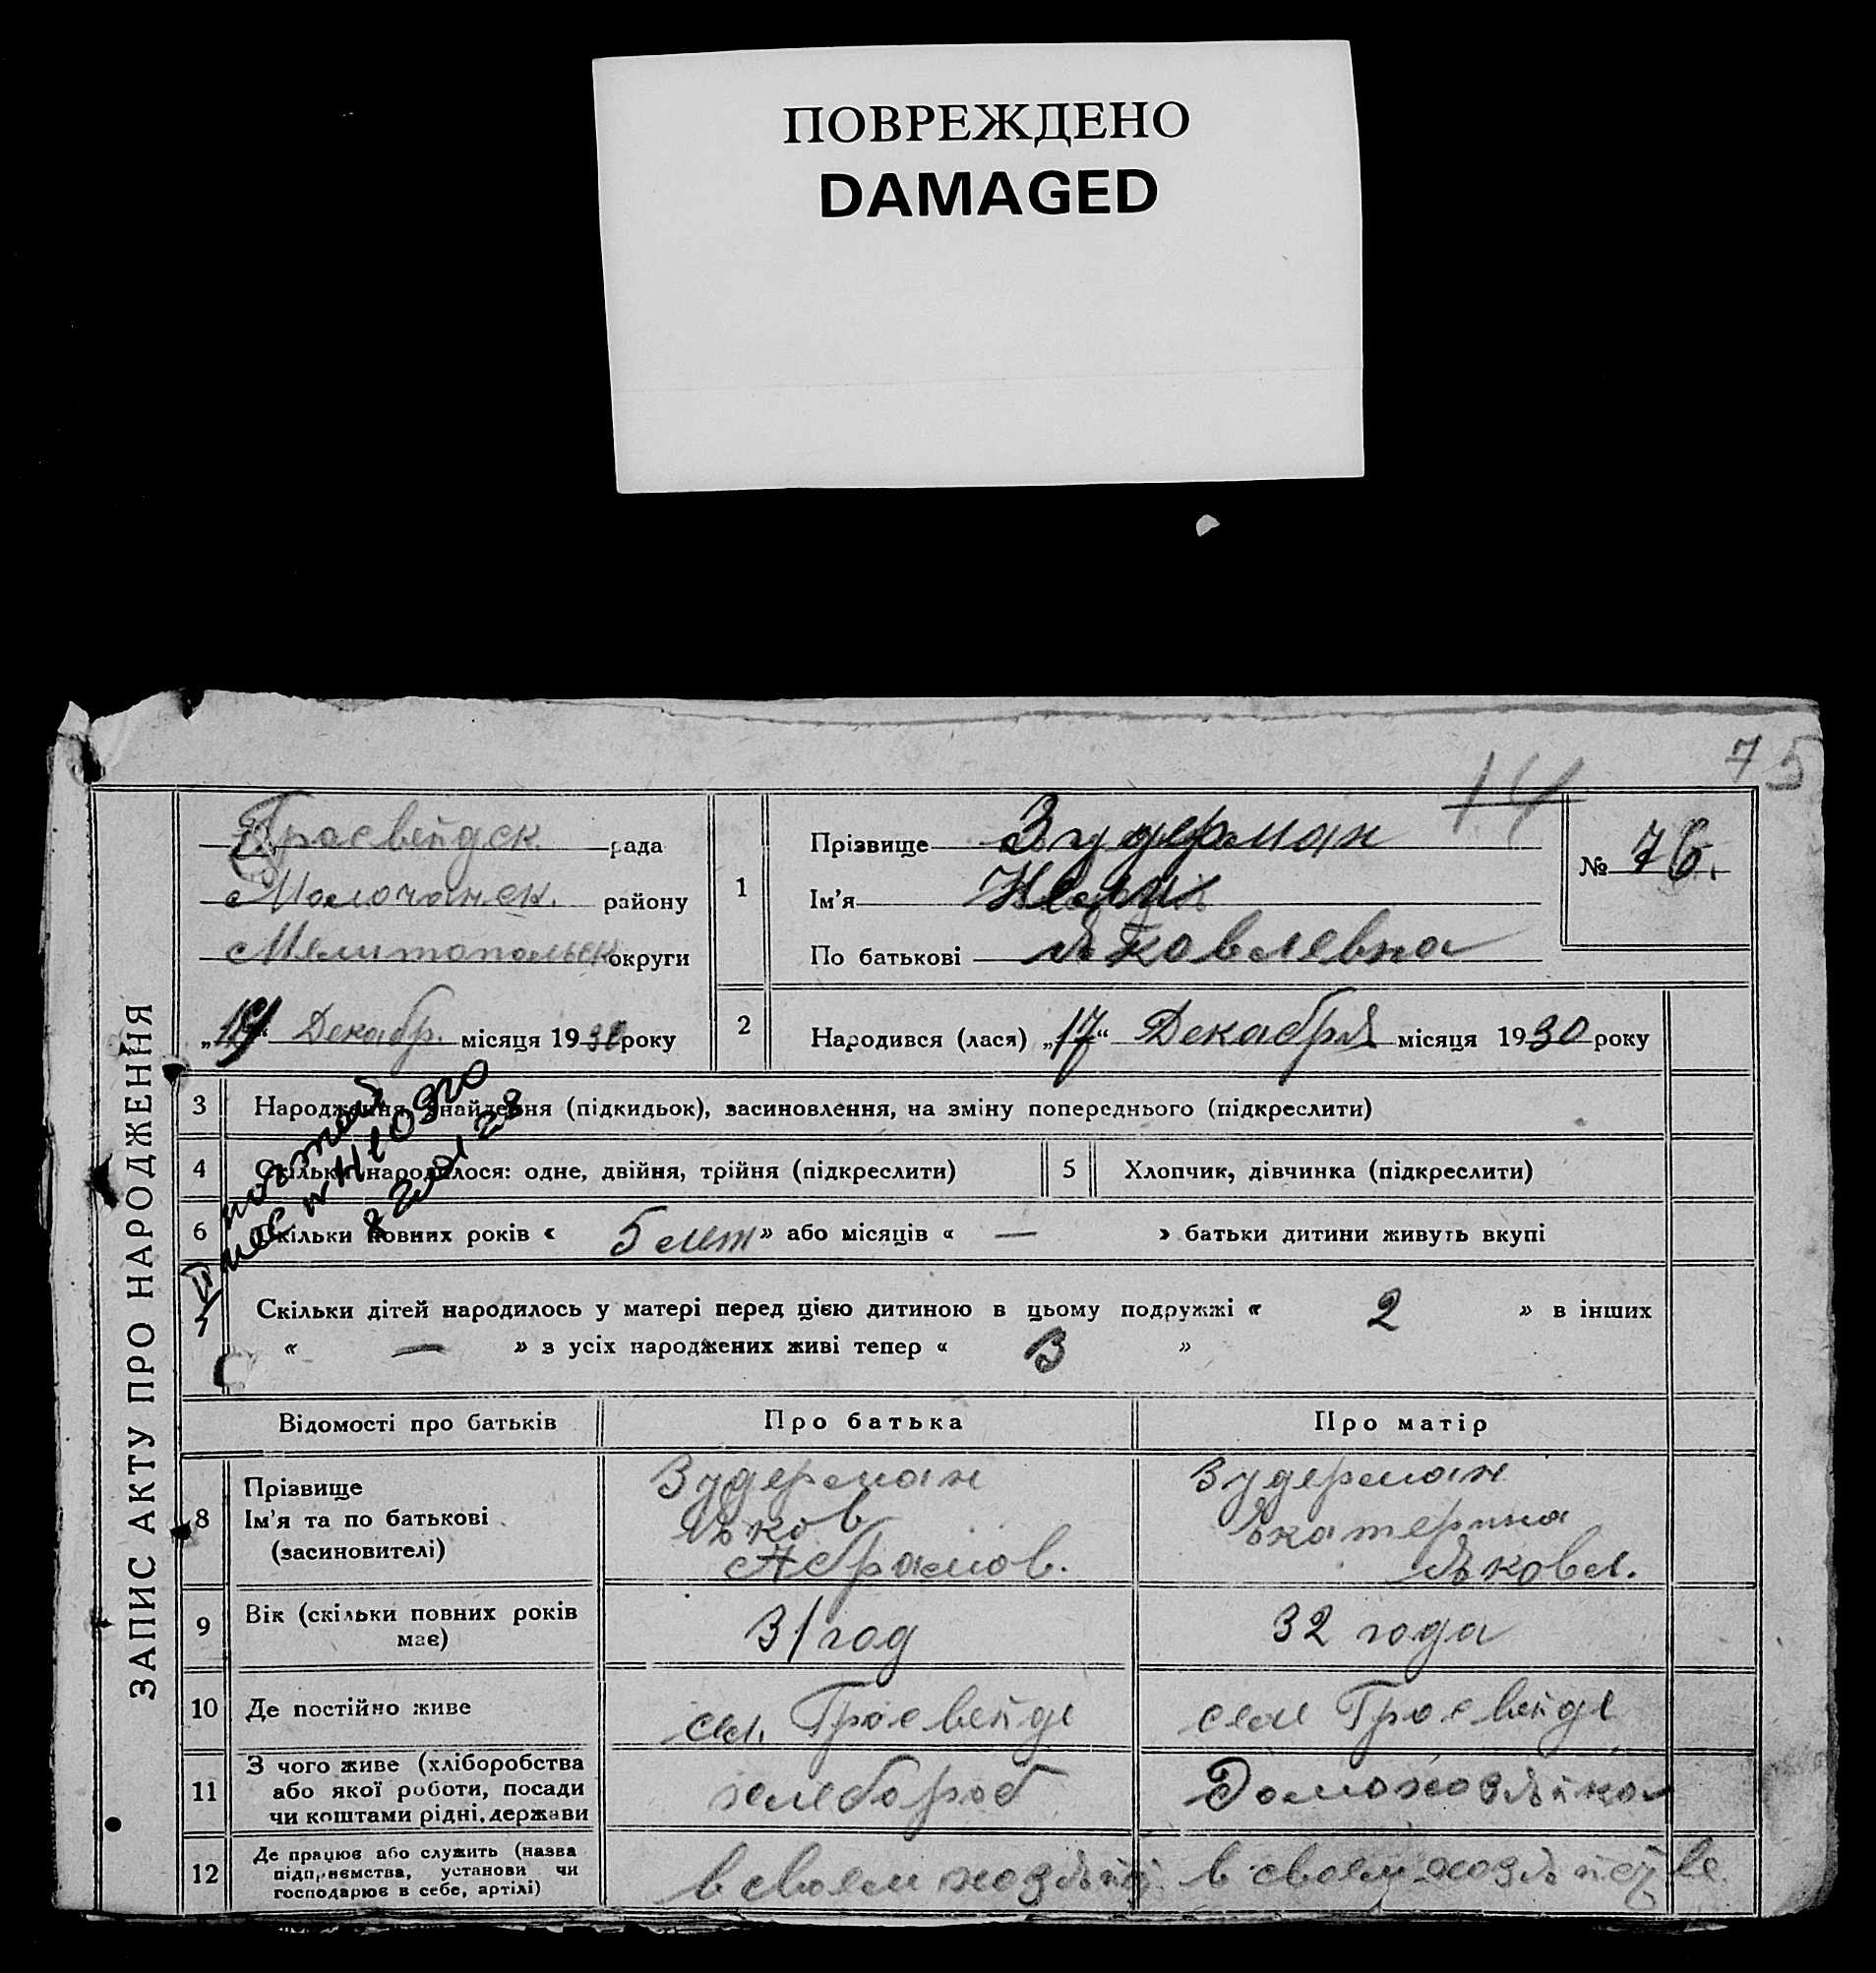 ПОВРЕЖДЕНО
DAMAGED
75
14
ЗАПИС АКТУ ПРО НАРОДЖЕННЯ
Гросвейдск. рада
Молочанск. району
Мелитопольск округи
„19“ Декабр. місяця 1930 року
1
Прізвище Зудерман
Ім'я
По батькові Яковлевна
№ 76.
2
Народився (лася) „17“ Декабря місяця 1930 року
3 Народження, знайдення (підкидьок), засиновлення, на зміну попереднього (підкреслити)
4 Скільки народилося: одне, двійня, трійня (підкреслити) 5 Хлопчик, дівчинка (підкреслити)
6 Скільки повних років « 5 лет » або місяців « — » батьки дитини живуть вкупі
7 Скільки дітей народилось у матері перед цією дитиною в цьому подружжі « 2 » в інших
« — » з усіх народжених живі тепер « 3 »
Відомості про батьків Про батька Про матір
8 Прізвище
Ім'я та по батькові
(засиновителі)
Зудерман
Яков
Абрамов.
Зудерман
Екатерина
Яковл.
9 Вік (скільки повних років
має)
31 год
32 года
10 Де постійно живе сел. Гросвейде селе Гросвейде
11 З чого живе (хліборобства
або якої роботи, посади
чи коштами рідні, держави
хлебороб
Домохозяйка
12 Де працює або служить (назва
підприємства, установи чи
господарює в себе, артілі)
в своем хозяйст
в своем хозяйстве